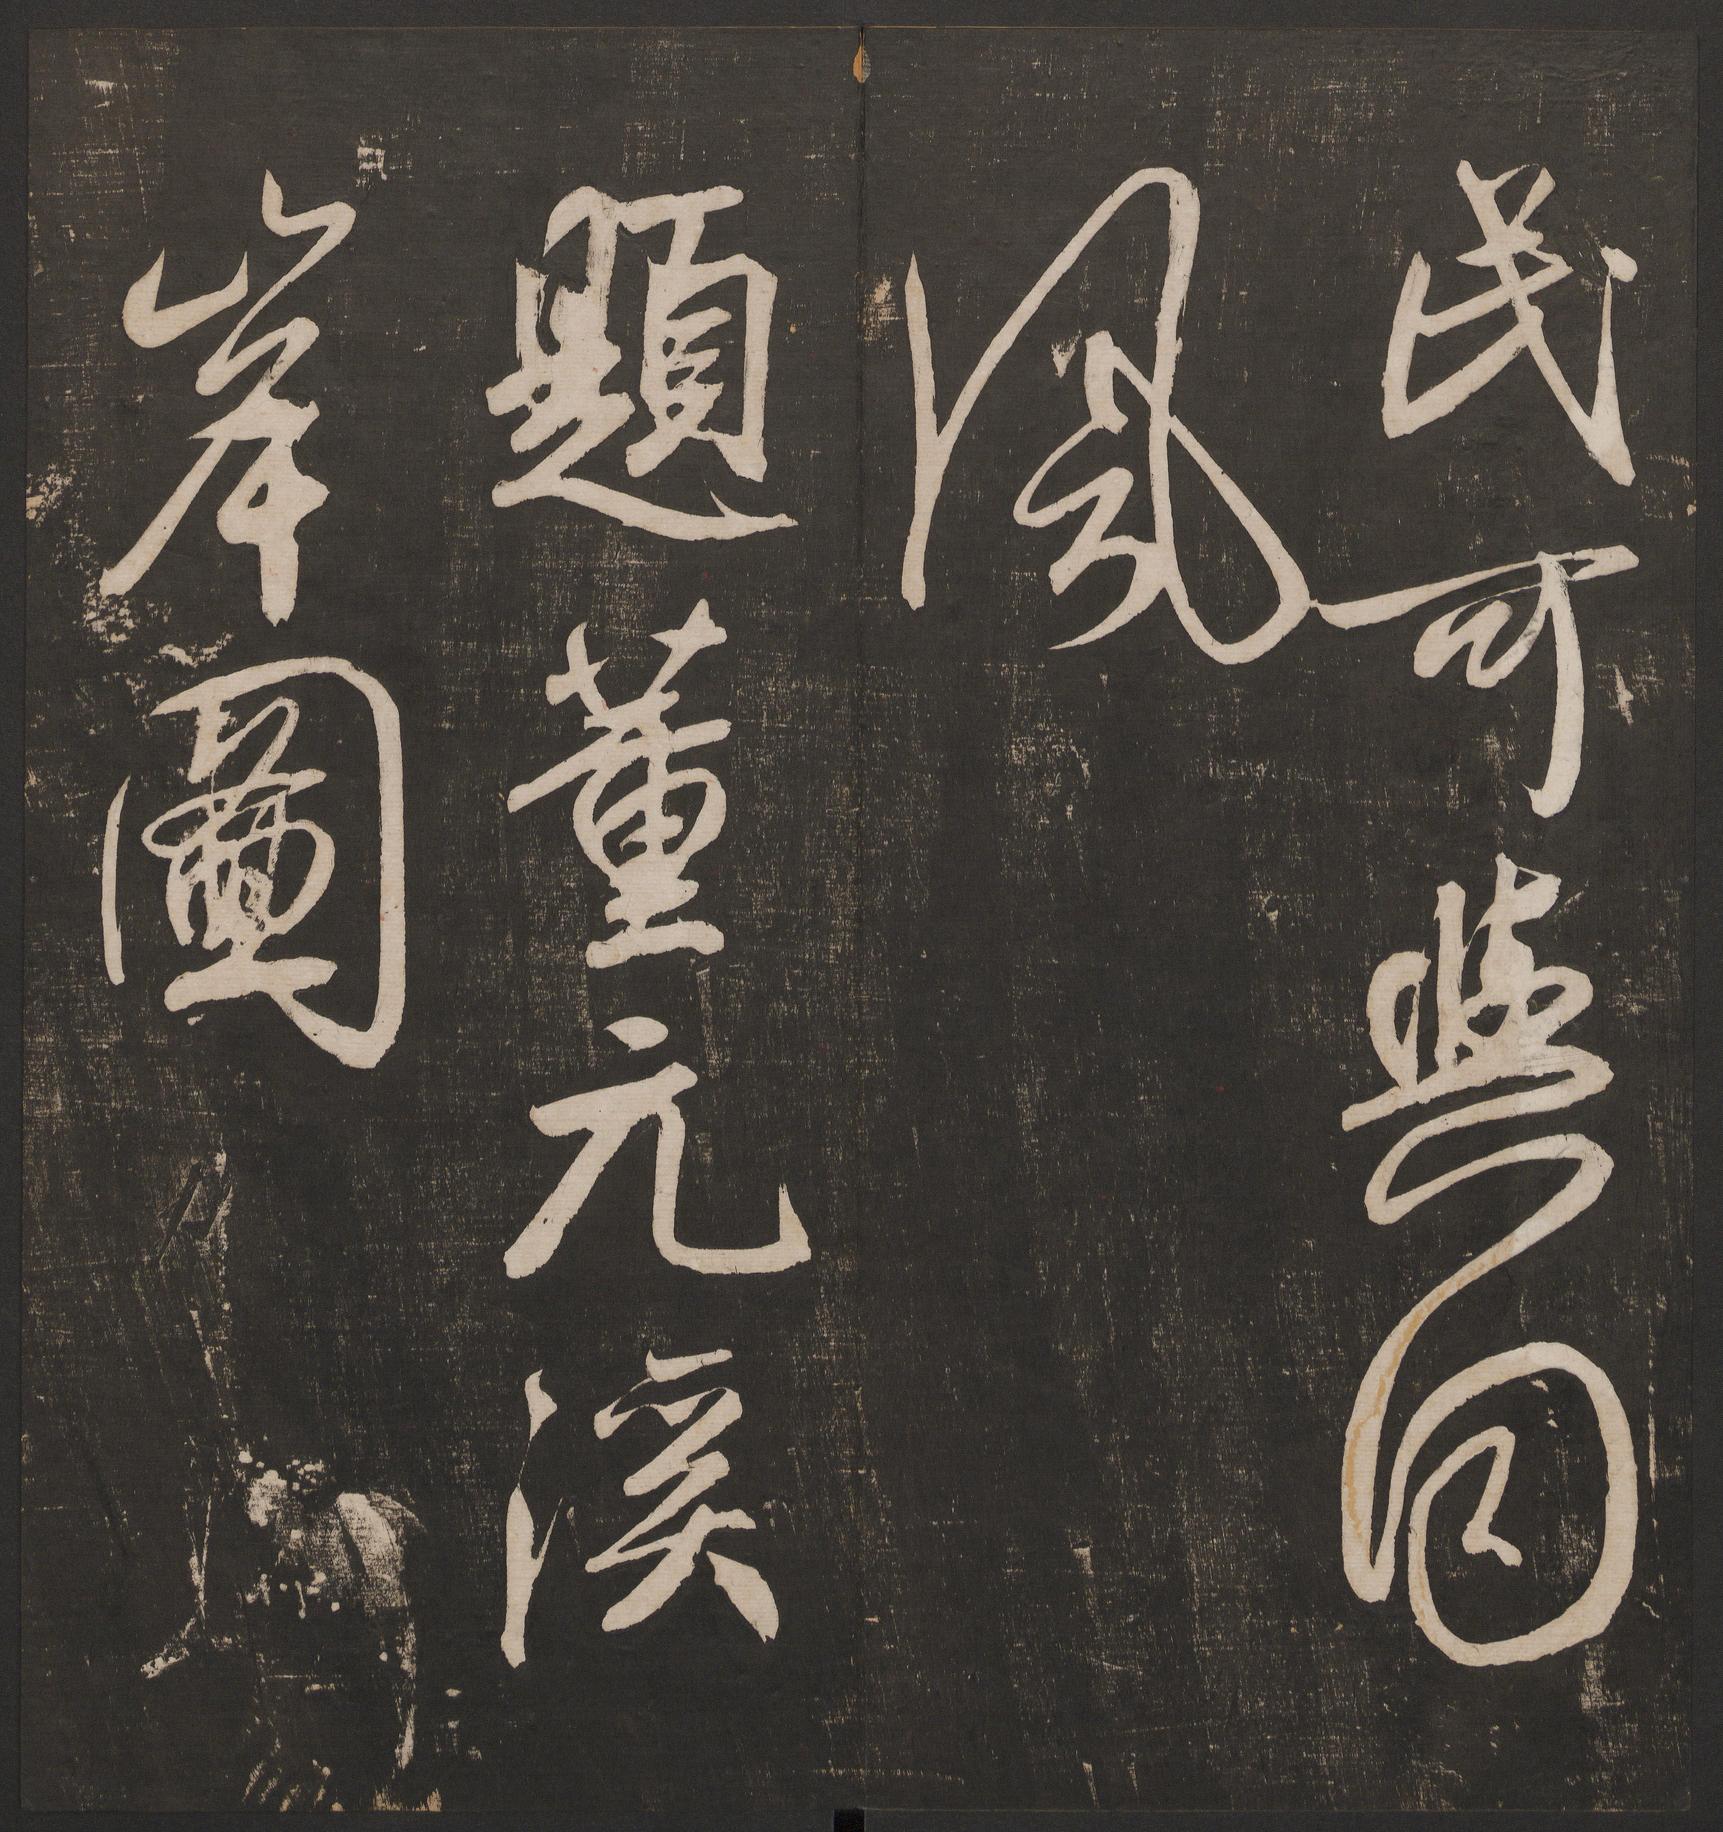 民可與同
風
題董元溪
岸圖